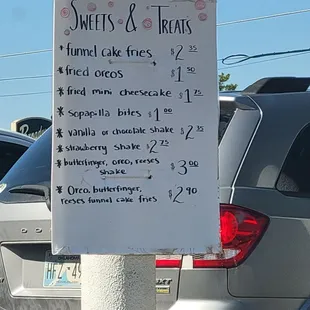 Sweets & Treats
* funnel cake fries $2.35
* fried oreos $1.50
* fried mini cheesecake $1.75
* Sopapilla bites $1.00
* vanilla or chocolate shake $2.35
* strawberry shake $2.75
* butterfinger, oreo, reeses shake $3.00
* Oreo, butterfinger, $2.90
reeses funnel cake fries